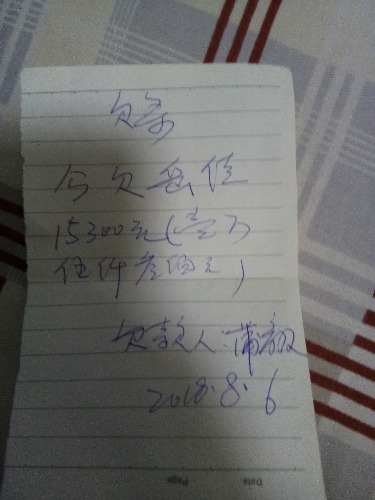 欠条
今欠
15300元(壹万
伍仟叁佰元)
欠款人:蒲
2018.8.6
Page
Date